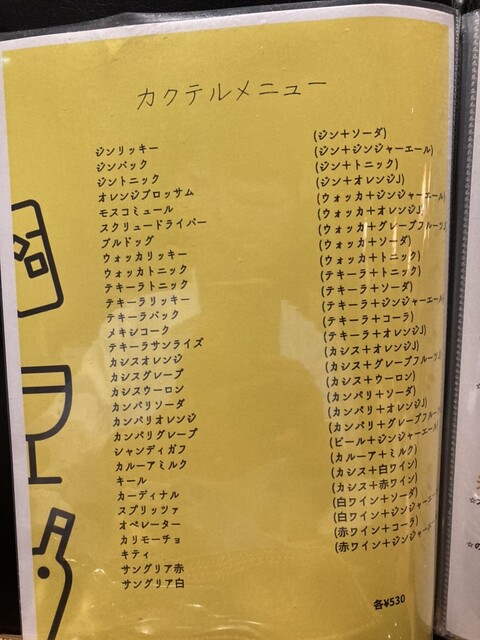 カクテルメニュー
ジンリッキー (ジン+ソーダ)
ジンバック (ジン+ジンジャーエール)
ジントニック (ジン+トニック)
オレンジブロッサム (ジン+オレンジJ)
モスコミュール (ウォッカ+ジンジャーエール)
スクリュードライバー (ウォッカ+オレンジJ)
ブルドッグ (ウォッカ+グレープフルーツJ
ウォッカリッキー (ウォッカ+ソーダ)
ウォッカトニック (ウォッカ+トニック)
テキーラトニック (テキーラ+トニック)
テキーラリッキー (テキーラ+ソーダ)
テキーラバック (テキーラ+ジンジャーエール)
メキシコーク (テキーラ+コーラ)
テキーラサンライズ (テキーラ+オレンジJ)
カシスオレンジ (カシス+オレンジJ)
カシスグレープ (カシス+グレープフルーツJ
カシスウーロン (カシス+ウーロン)
カンパリソーダ (カンパリ+ソーダ)
カンパリオレンジ (カンパリ+オレンジJ)
カンパリグレープ (カンパリ+グレープフルーツ
シャンディガフ (ビール+ジンジャーエール)
カルーアミルク (カルーア+ミルク)
キール (カシス+白ワイン)
カーディナル (カシス+赤ワイン)
スプリッツァ (白ワイン+ソーダ)
オペレーター (白ワイン+ジンジャーエー
カリモーチョ (赤ワイン+コーラ)
キティ (赤ワイン+ジンジャー
サングリア赤
サングリア白
各¥530